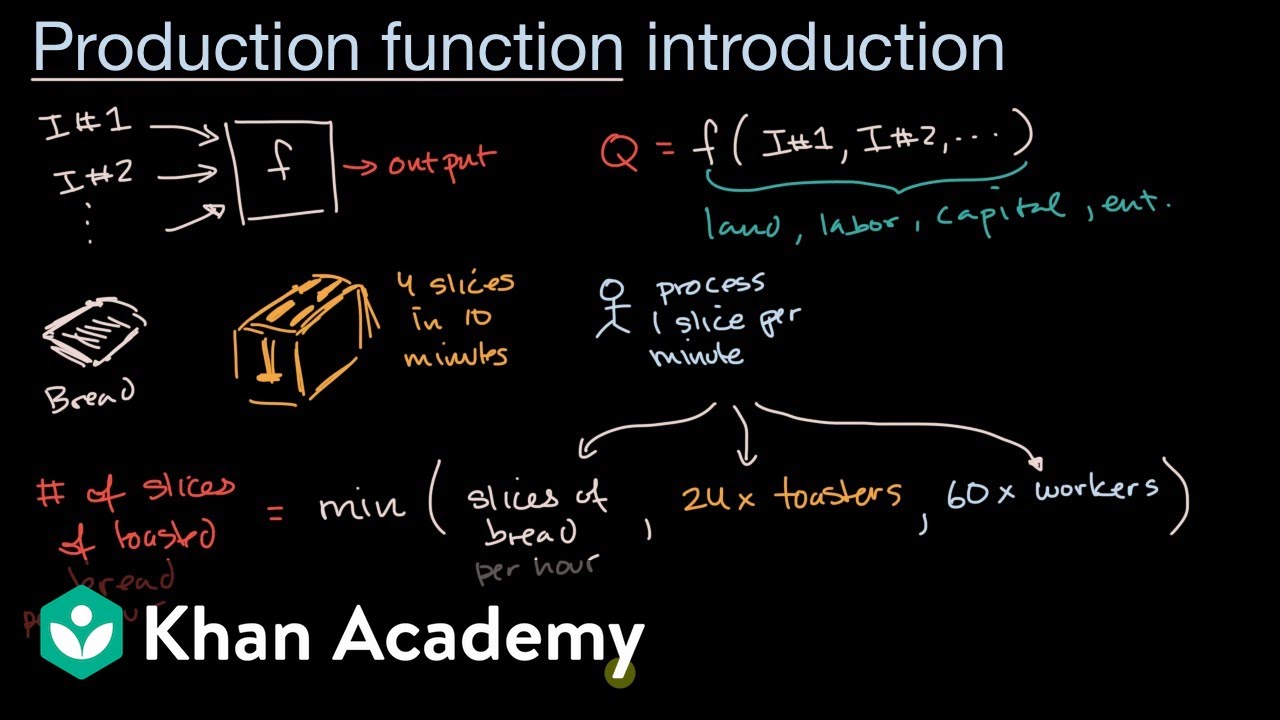 Production function introduction
I#1
I#2
⋮
f
→ output
Q = f(I#1, I#2, ...)
land, labor, capital, ent.
Bread
4 slices
in 10
minutes
process
1 slice per
minute
# of slices
of toasted
bread
= min ( slices of
bread
per hour
, 24 x toasters , 60 x workers )
Khan Academy